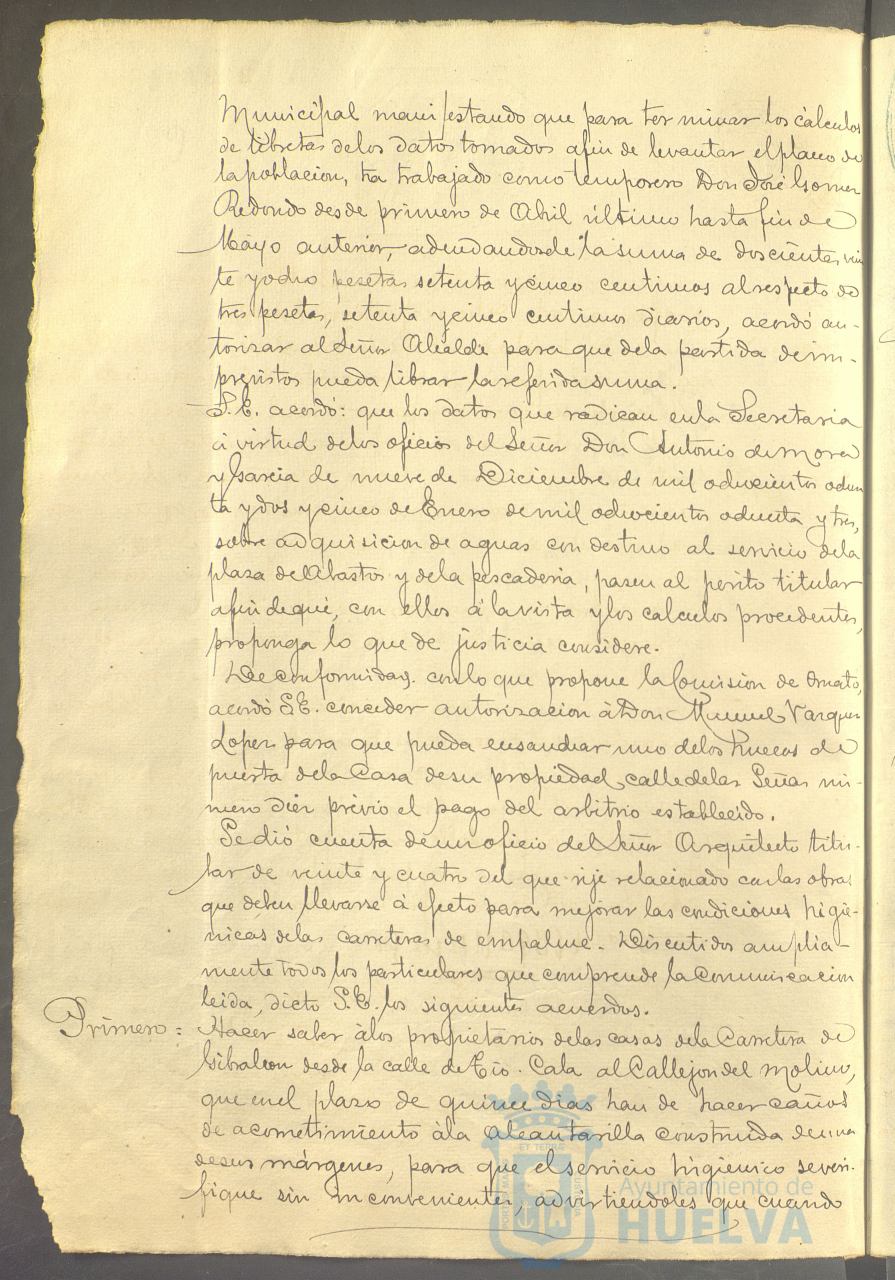 Municipal manifestando que para terminar los cálculos
de libretas de los datos tomados afin de levantar el plano de
la poblacion, ha trabajado como temporero Don José Gomez
Redondo desde primero de Abril último hasta fin de
Mayo anterior, adeudandosele la suma de doscientas vein
te y ocho pesetas setenta y cinco centimos al respecto de
tres pesetas, setenta y cinco centimos diarios, acordó au-
torizar al Señor Alcalde para que de la partida de im-
previstos pueda librar la referida suma.
S.E. acordó: que los datos que radican en la Secretaria
á virtud de los oficios del Señor Don Antonio de Mora
y Garcia de nueve de Diciembre de mil ochocientos ochen
ta y dos y cinco de Enero de mil ochocientos ochenta y tres,
sobre adquisicion de aguas con destino al servicio de la
plaza de Abastos y de la pescaderia, pasen al perito titular
afin de que, con ellos á la vista y los calculos procedentes,
proponga lo que de justicia considere.
De conformidad con lo que propone la Comision de Ornato,
acordó S.E. conceder autorizacion á Don Manuel Vazquez
Lopez para que pueda ensanchar uno de los huecos de
puerta de la Casa de su propiedad calle de las Peñas nu-
mero diez previo el pago del arbitrio establecido.
Se dió cuenta de un oficio del Señor Arquitecto titu-
lar de veinte y cuatro del que rije relacionado con las obras
que deben llevarse á efecto para mejorar las condiciones higie-
nicas de las carreteras de empalme. Discutidos amplia-
mente todos los particulares que comprende la comunicacion
leida, dictó S.E. los siguientes acuerdos.
Primero: Hacer saber á los propietarios de las casas de la Carretera de
Gibraleon desde la calle de Tio Cala al Callejon del Molino,
que en el plazo de quince dias han de hacer caños
de acometimiento á la alcantarilla construida de una
de sus márgenes, para que el servicio higienico se veri-
fique sin inconvenientes, advirtiendoles que cuando
Ayuntamiento de
HUELVA